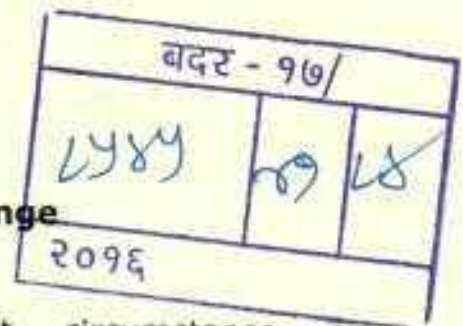 बदर - १७/
८५४५ ८४
nge
२०१६